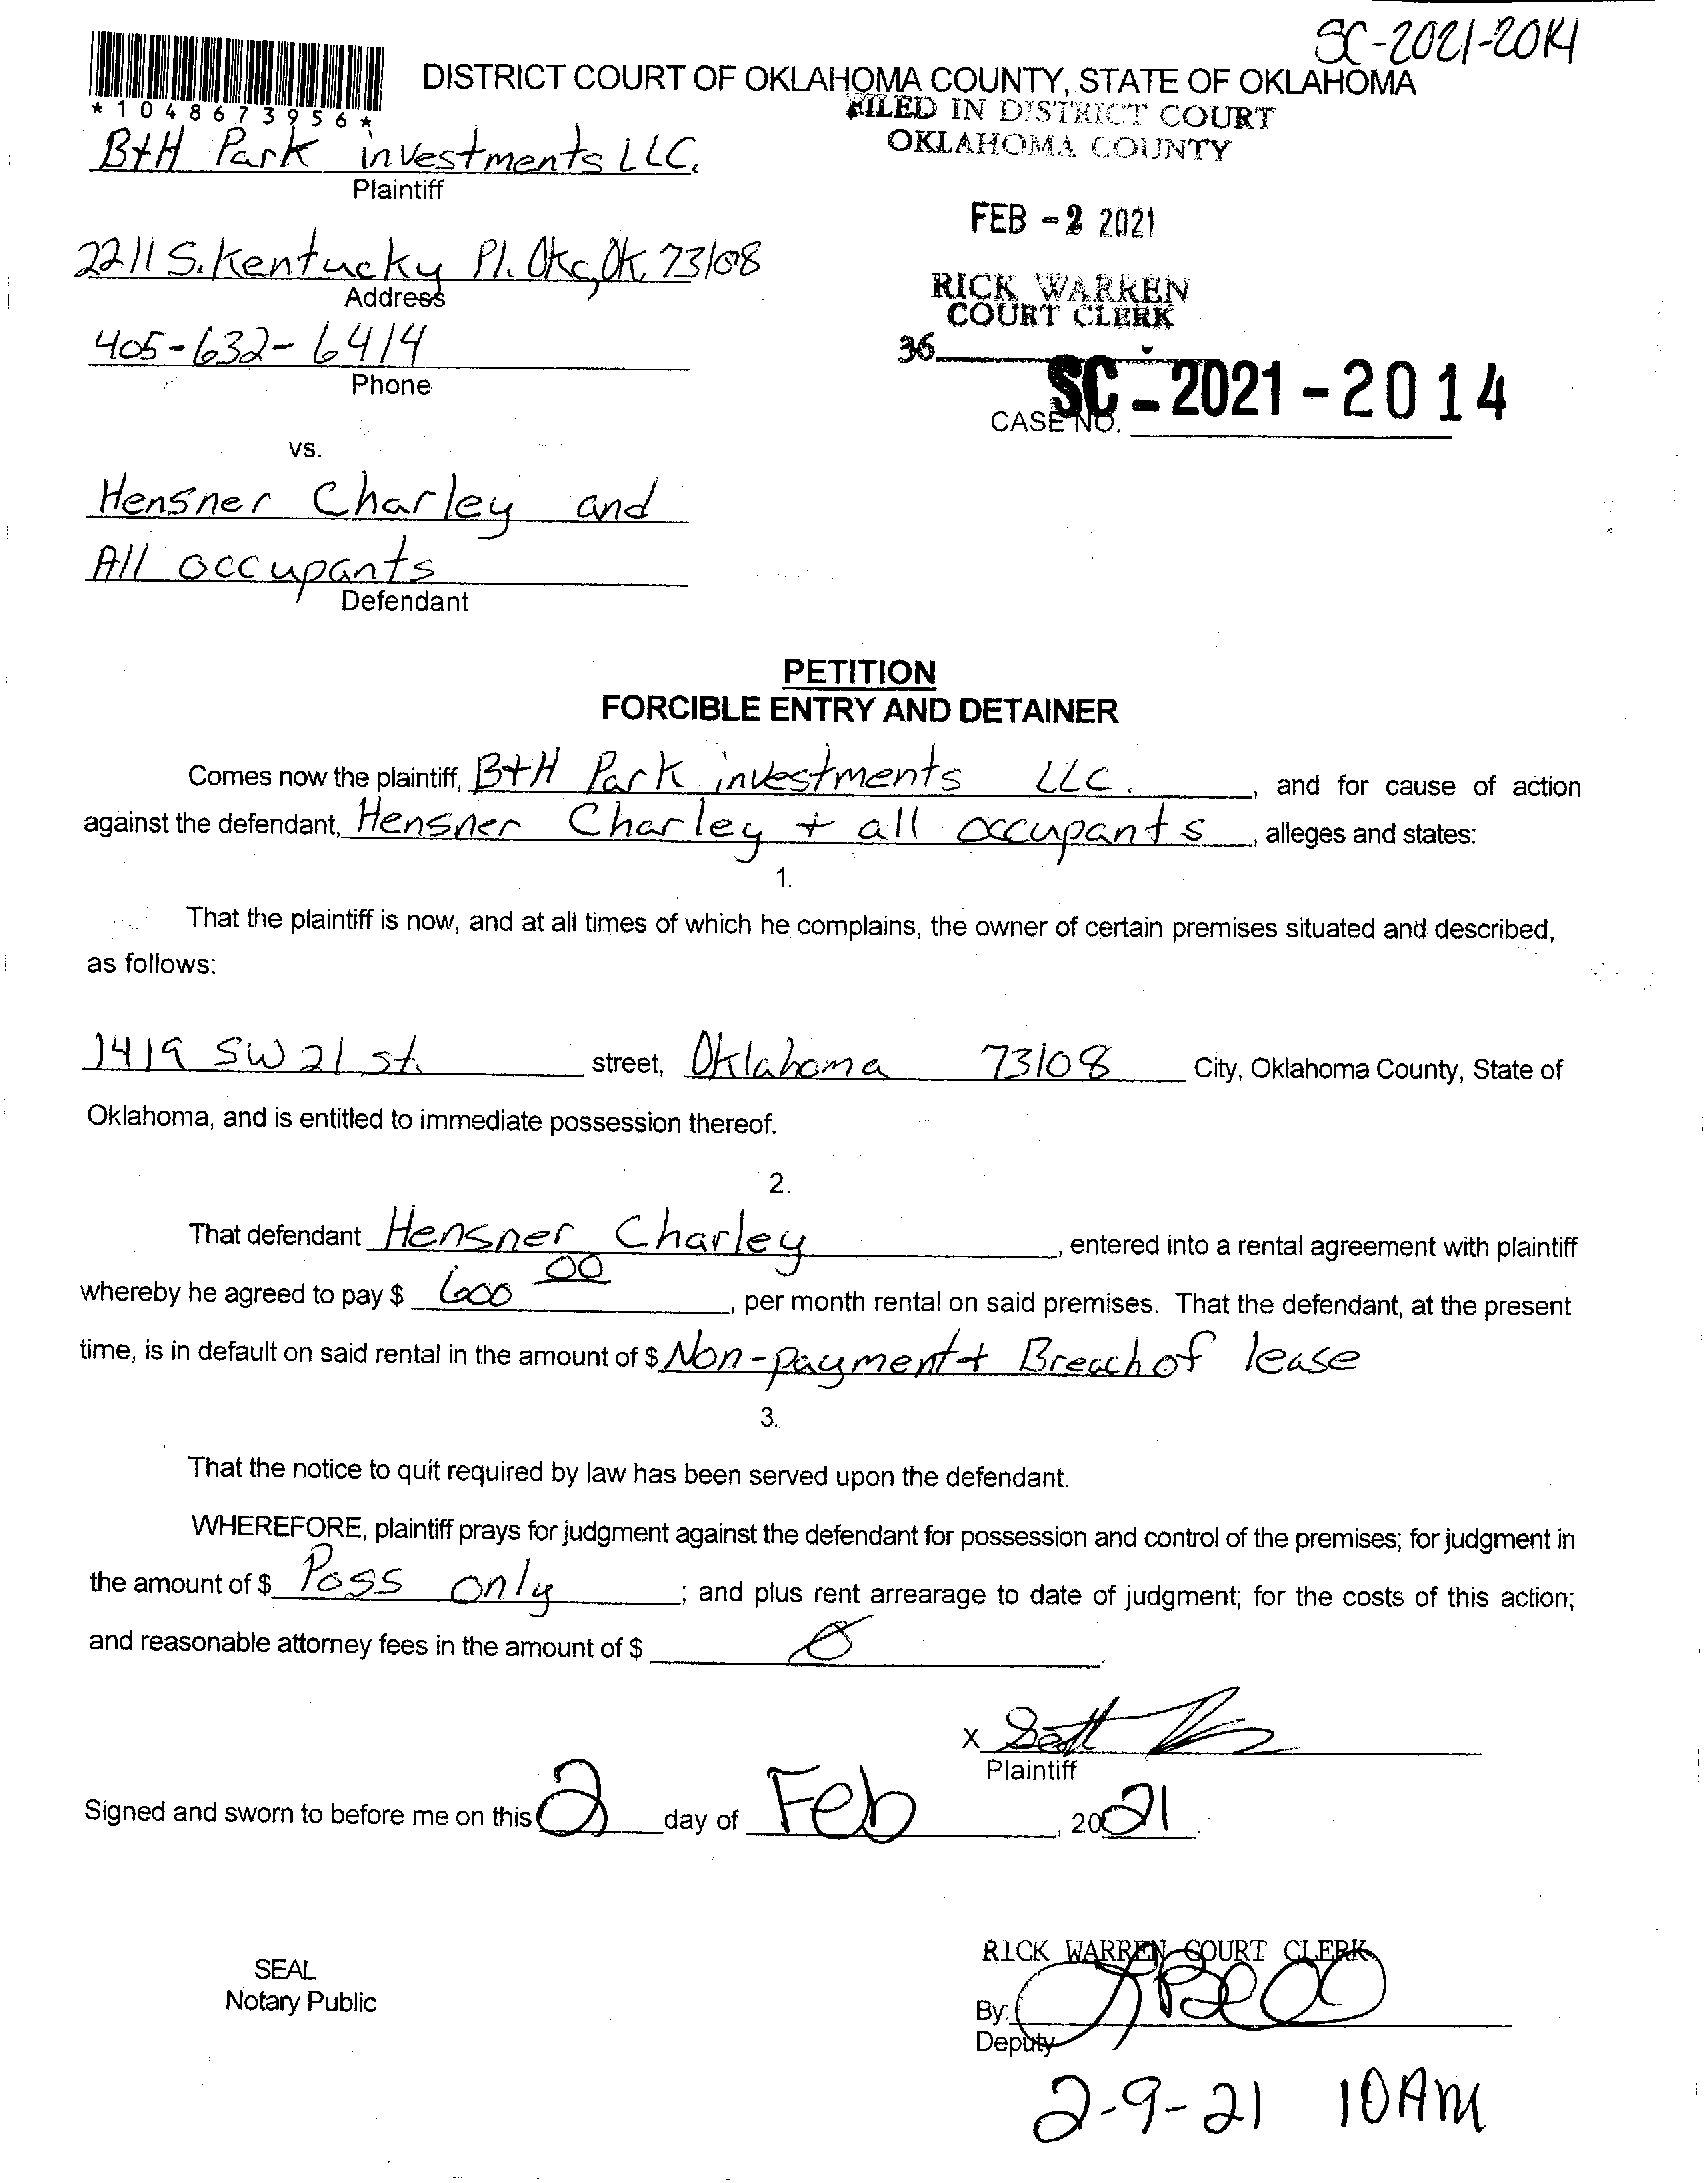 SC-2021-2014
DISTRICT COURT OF OKLAHOMA COUNTY, STATE OF OKLAHOMA
*1048673956*
FILED IN DISTRICT COURT
OKLAHOMA COUNTY
B+H Park investments LLC.
Plaintiff
FEB -2 2021
2211 S. Kentucky Pl. Okc, Ok. 73108
Address
RICK WARREN
COURT CLERK
405-632-6414
Phone
36
SC-2021-2014
CASE NO.
vs.
Hensner Charley and
All occupants
Defendant
PETITION
FORCIBLE ENTRY AND DETAINER
Comes now the plaintiff, B+H Park investments LLC., and for cause of action
against the defendant, Hensner Charley + all occupants, alleges and states:
1.
That the plaintiff is now, and at all times of which he complains, the owner of certain premises situated and described,
as follows:
1419 SW 21 st. street, Oklahoma 73108 City, Oklahoma County, State of
Oklahoma, and is entitled to immediate possession thereof.
2.
That defendant Hensner Charley, entered into a rental agreement with plaintiff
whereby he agreed to pay $ 600 00, per month rental on said premises. That the defendant, at the present
time, is in default on said rental in the amount of $ Non-payment + Breach of lease
3.
That the notice to quit required by law has been served upon the defendant.
WHEREFORE, plaintiff prays for judgment against the defendant for possession and control of the premises; for judgment in
the amount of $ Poss only; and plus rent arrearage to date of judgment; for the costs of this action;
and reasonable attorney fees in the amount of $ 0.
X
Plaintiff
Signed and sworn to before me on this 2 day of Feb, 2021.
SEAL
Notary Public
RICK WARREN COURT CLERK
By:
Deputy
2-9-21 10AM